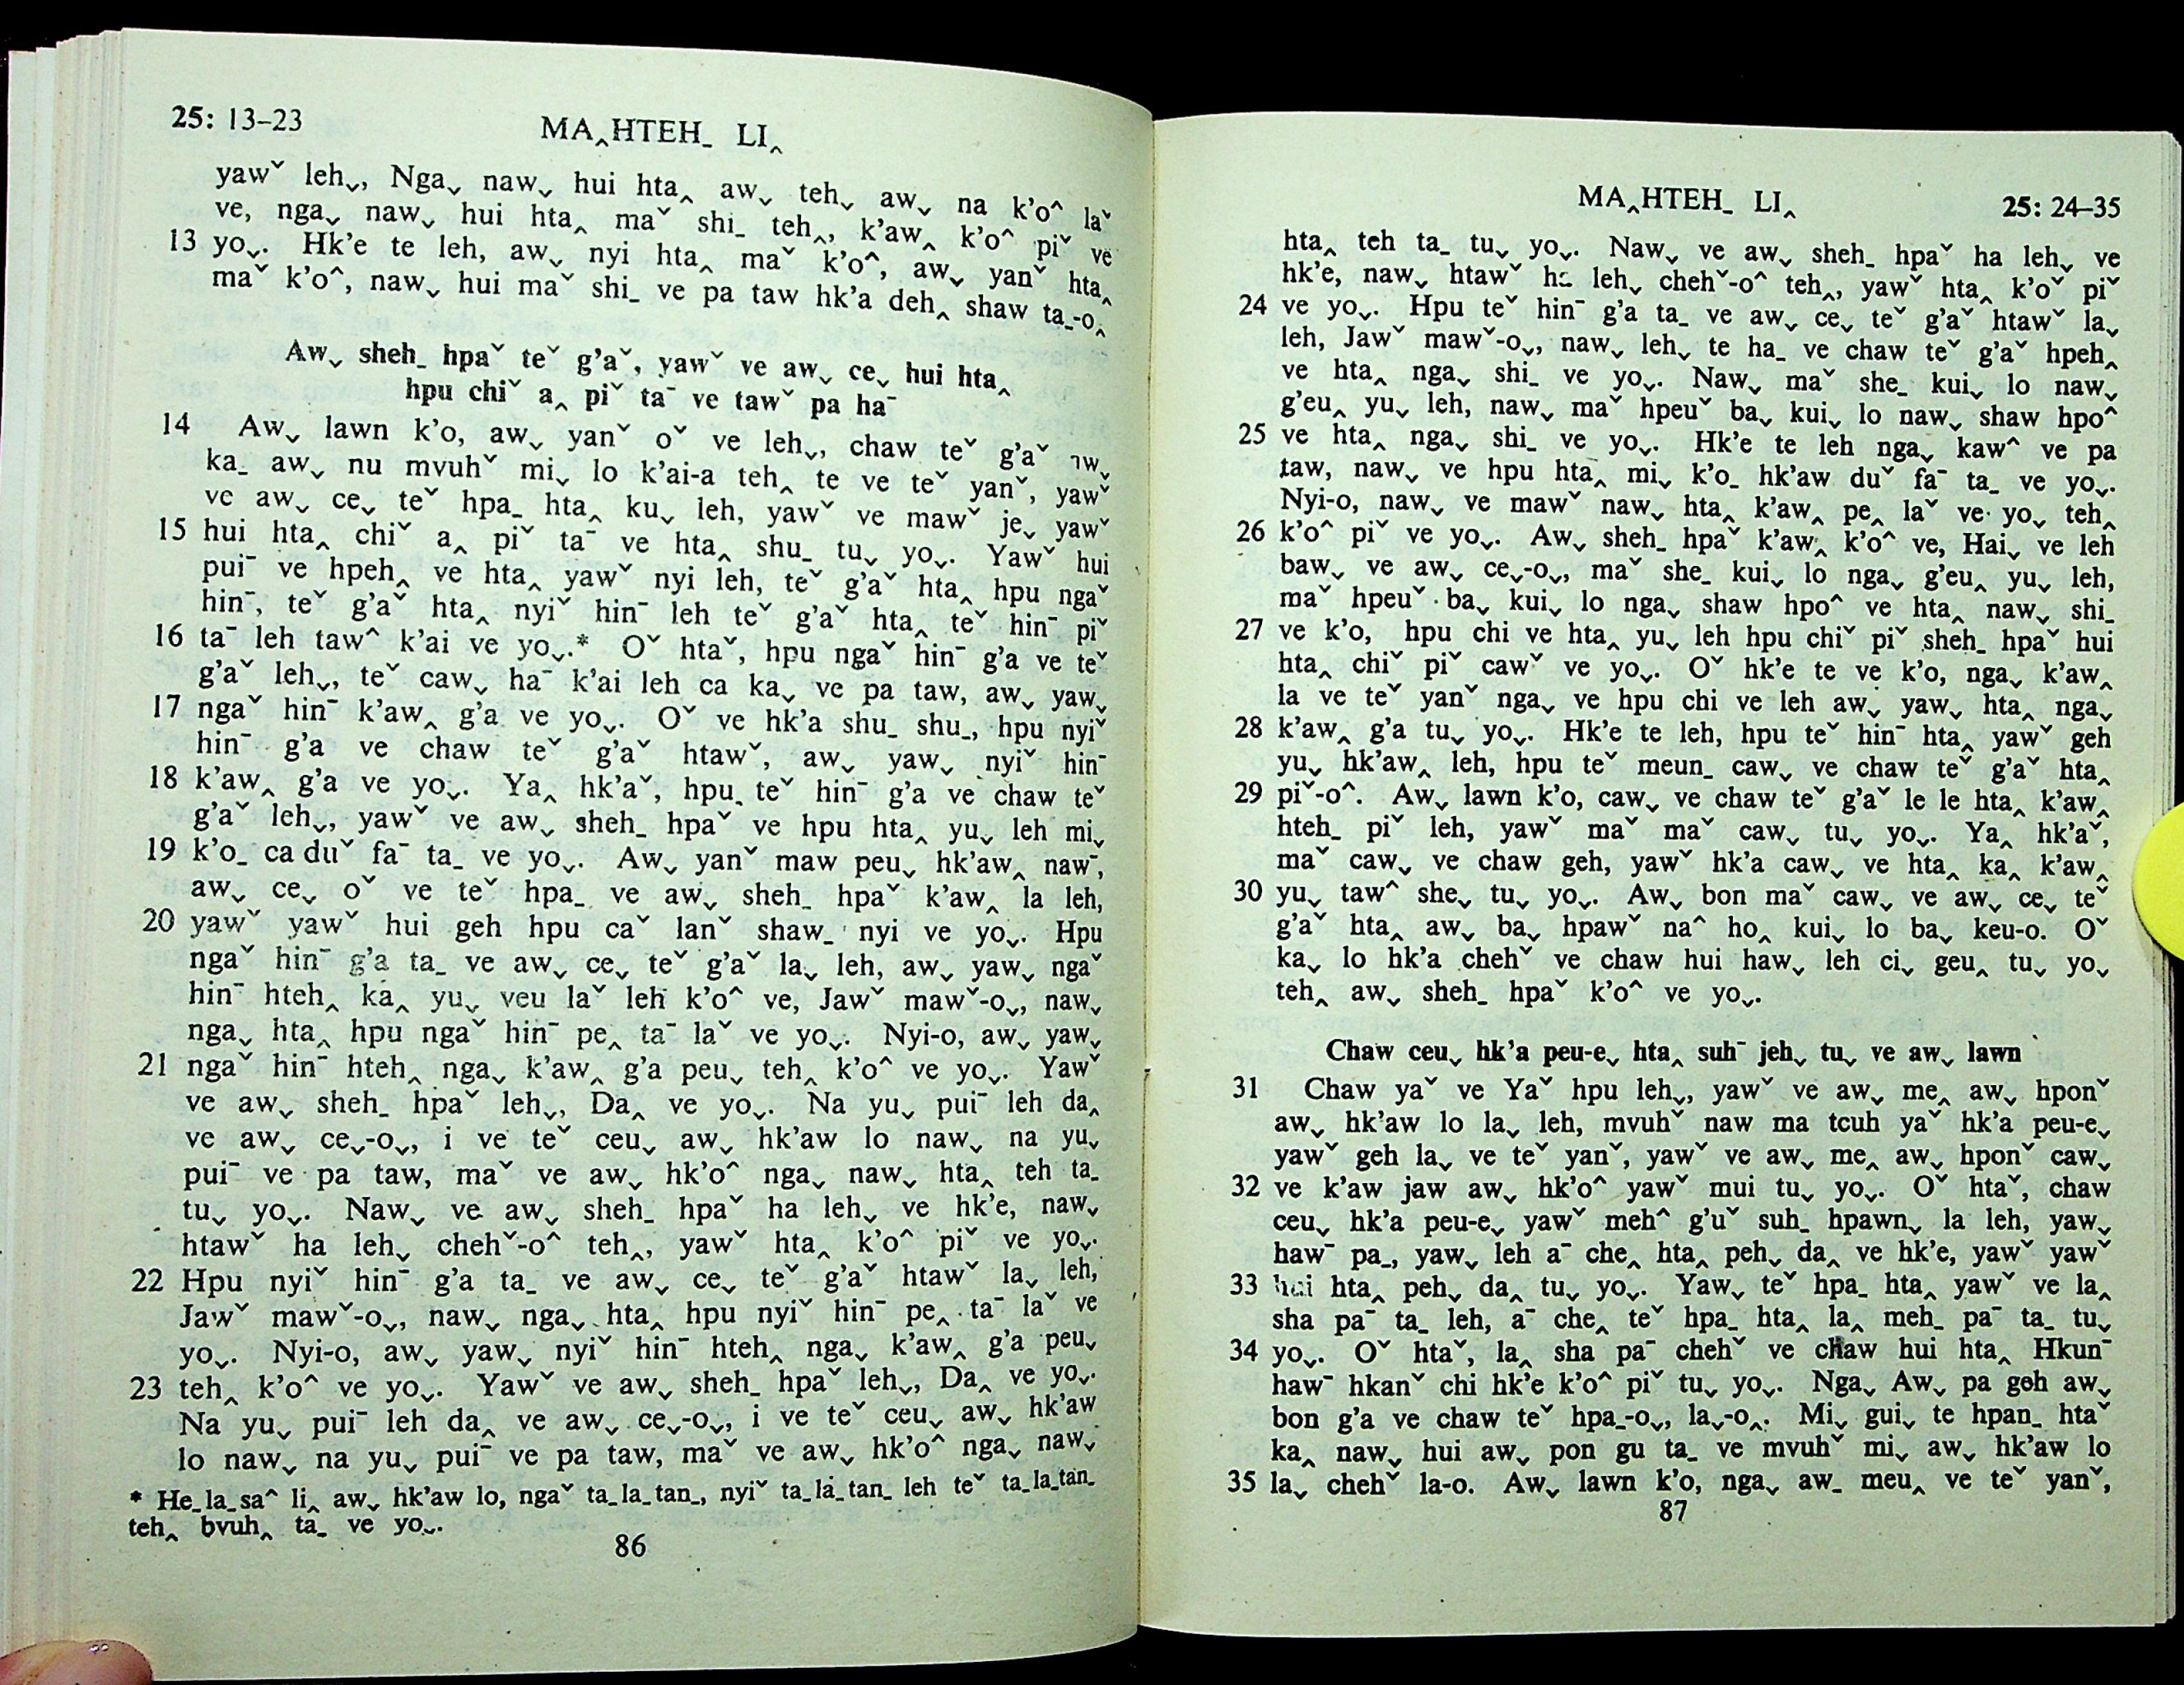 25: 13–23
MA‸HTEH_ LI‸
yawˇ leh⌄, Nga⌄ naw⌄ hui hta‸ aw⌄ teh⌄ aw⌄ na k'o^ laˇ
ve, nga⌄ naw⌄ hui hta‸ maˇ shi_ teh‸, k'aw‸ k'o^ piˇ ve
13 yo⌄. Hk'e te leh, aw⌄ nyi hta‸ maˇ k'o^, aw⌄ yanˇ hta‸
maˇ k'o^, naw⌄ hui maˇ shi_ ve pa taw hk'a deh‸ shaw ta_-o‸
Aw⌄ sheh_ hpaˇ teˇ g'aˇ, yawˇ ve aw⌄ ce⌄ hui hta‸
hpu chiˇ a‸ piˇ ta¯ ve tawˇ pa ha¯
14 Aw⌄ lawn k'o, aw⌄ yanˇ oˇ ve leh⌄, chaw teˇ g'aˇ
ka_ aw⌄ nu mvuhˇ mi⌄ lo k'ai-a teh‸ te ve teˇ yanˇ, yawˇ
ve aw⌄ ce⌄ teˇ hpa_ hta‸ ku⌄ leh, yawˇ ve mawˇ je⌄ yawˇ
15 hui hta‸ chiˇ a‸ piˇ ta¯ ve hta‸ shu_ tu⌄ yo⌄. Yawˇ hui
pui¯ ve hpeh‸ ve hta‸ yawˇ nyi leh, teˇ g'aˇ hta‸ hpu ngaˇ
hin¯, teˇ g'aˇ hta‸ nyiˇ hin¯ leh teˇ g'aˇ hta‸ teˇ hin¯ piˇ
16 ta¯ leh taw^ k'ai ve yo⌄.* Oˇ htaˇ, hpu ngaˇ hin¯ g'a ve teˇ
g'aˇ leh⌄, teˇ caw⌄ ha¯ k'ai leh ca ka⌄ ve pa taw, aw⌄ yaw⌄
17 ngaˇ hin¯ k'aw‸ g'a ve yo⌄. Oˇ ve hk'a shu_ shu_, hpu nyiˇ
hin¯ g'a ve chaw teˇ g'aˇ htawˇ, aw⌄ yaw⌄ nyiˇ hin¯
18 k'aw‸ g'a ve yo⌄. Ya‸ hk'aˇ, hpu teˇ hin¯ g'a ve chaw teˇ
g'aˇ leh⌄, yawˇ ve aw⌄ sheh_ hpaˇ ve hpu hta‸ yu⌄ leh mi⌄
19 k'o_ ca duˇ fa¯ ta_ ve yo⌄. Aw⌄ yanˇ maw peu⌄ hk'aw‸ naw¯,
aw⌄ ce⌄ oˇ ve teˇ hpa_ ve aw⌄ sheh_ hpaˇ k'aw‸ la leh,
20 yawˇ yawˇ hui geh hpu caˇ lanˇ shaw_ nyi ve yo⌄. Hpu
ngaˇ hin¯ g'a ta_ ve aw⌄ ce⌄ teˇ g'aˇ la⌄ leh, aw⌄ yaw⌄ ngaˇ
hin¯ hteh‸ ka‸ yu⌄ veu laˇ leh k'o^ ve, Jawˇ mawˇ-o⌄, naw⌄
nga⌄ hta‸ hpu ngaˇ hin¯ pe‸ ta¯ laˇ ve yo⌄. Nyi-o, aw⌄ yaw⌄
21 ngaˇ hin¯ hteh‸ nga⌄ k'aw‸ g'a peu⌄ teh‸ k'o^ ve yo⌄. Yawˇ
ve aw⌄ sheh_ hpaˇ leh⌄, Da‸ ve yo⌄. Na yu⌄ pui¯ leh da‸
ve aw⌄ ce⌄-o⌄, i ve teˇ ceu⌄ aw⌄ hk'aw lo naw⌄ na yu⌄
pui¯ ve pa taw, maˇ ve aw⌄ hk'o^ nga⌄ naw⌄ hta‸ teh ta_
tu⌄ yo⌄. Naw⌄ ve aw⌄ sheh_ hpaˇ ha leh⌄ ve hk'e, naw⌄
htawˇ ha leh⌄ chehˇ-o^ teh‸, yawˇ hta‸ k'o^ piˇ ve yo⌄.
22 Hpu nyiˇ hin¯ g'a ta_ ve aw⌄ ce⌄ teˇ g'aˇ htawˇ la⌄ leh,
Jawˇ mawˇ-o⌄, naw⌄ nga⌄ hta‸ hpu nyiˇ hin¯ pe‸ ta¯ laˇ ve
yo⌄. Nyi-o, aw⌄ yaw⌄ nyiˇ hin¯ hteh‸ nga⌄ k'aw‸ g'a peu⌄
23 teh‸ k'o^ ve yo⌄. Yawˇ ve aw⌄ sheh_ hpaˇ leh⌄, Da‸ ve yo⌄.
Na yu⌄ pui¯ leh da‸ ve aw⌄ ce⌄-o⌄, i ve teˇ ceu⌄ aw⌄ hk'aw
lo naw⌄ na yu⌄ pui¯ ve pa taw, maˇ ve aw⌄ hk'o^ nga⌄ naw⌄
* He_la_sa^ li‸ aw⌄ hk'aw lo, ngaˇ ta_la_tan_, nyiˇ ta_la_tan_ leh teˇ ta_la_tan_
teh‸ bvuh‸ ta_ ve yo⌄.
86
MA‸HTEH_ LI‸
25: 24–35
hta‸ teh ta_ tu⌄ yo⌄. Naw⌄ ve aw⌄ sheh_ hpaˇ ha leh⌄ ve
hk'e, naw⌄ htawˇ ha leh⌄ chehˇ-o^ teh‸, yawˇ hta‸ k'oˇ piˇ
24 ve yo⌄. Hpu teˇ hin¯ g'a ta_ ve aw⌄ ce⌄ teˇ g'aˇ htawˇ la⌄
leh, Jawˇ mawˇ-o⌄, naw⌄ leh⌄ te ha_ ve chaw teˇ g'aˇ hpeh‸
ve hta‸ nga⌄ shi_ ve yo⌄. Naw⌄ maˇ she_ kui⌄ lo naw⌄
g'eu‸ yu⌄ leh, naw⌄ maˇ hpeuˇ ba⌄ kui⌄ lo naw⌄ shaw hpo^
25 ve hta‸ nga⌄ shi_ ve yo⌄. Hk'e te leh nga⌄ kaw^ ve pa
taw, naw⌄ ve hpu hta‸ mi⌄ k'o_ hk'aw duˇ fa¯ ta_ ve yo⌄.
Nyi-o, naw⌄ ve mawˇ naw⌄ hta‸ k'aw‸ pe‸ laˇ ve yo⌄ teh‸
26 k'o^ piˇ ve yo⌄. Aw⌄ sheh_ hpaˇ k'aw‸ k'o^ ve, Hai⌄ ve leh
baw⌄ ve aw⌄ ce⌄-o⌄, maˇ she_ kui⌄ lo nga⌄ g'eu‸ yu⌄ leh,
maˇ hpeuˇ ba⌄ kui⌄ lo nga⌄ shaw hpo^ ve hta‸ naw⌄ shi_
27 ve k'o, hpu chi ve hta‸ yu⌄ leh hpu chiˇ piˇ sheh_ hpaˇ hui
hta‸ chiˇ piˇ cawˇ ve yo⌄. Oˇ hk'e te ve k'o, nga⌄ k'aw‸
la ve teˇ yanˇ nga⌄ ve hpu chi ve leh aw⌄ yaw⌄ hta‸ nga⌄
28 k'aw‸ g'a tu⌄ yo⌄. Hk'e te leh, hpu teˇ hin¯ hta‸ yawˇ geh
yu⌄ hk'aw‸ leh, hpu teˇ meun_ caw⌄ ve chaw teˇ g'aˇ hta‸
29 piˇ-o^. Aw⌄ lawn k'o, caw⌄ ve chaw teˇ g'aˇ le le hta‸ k'aw‸
hteh_ piˇ leh, yawˇ maˇ maˇ caw⌄ tu⌄ yo⌄. Ya‸ hk'aˇ,
maˇ caw⌄ ve chaw geh, yawˇ hk'a caw⌄ ve hta‸ ka‸ k'aw‸
30 yu⌄ taw^ she⌄ tu⌄ yo⌄. Aw⌄ bon maˇ caw⌄ ve aw⌄ ce⌄ teˇ
g'aˇ hta‸ aw⌄ ba⌄ hpawˇ na^ ho‸ kui⌄ lo ba⌄ keu-o. Oˇ
ka⌄ lo hk'a chehˇ ve chaw hui haw⌄ leh ci⌄ geu‸ tu⌄ yo⌄
teh‸ aw⌄ sheh_ hpaˇ k'o^ ve yo⌄.
Chaw ceu⌄ hk'a peu-e⌄ hta‸ suh¯ jeh⌄ tu⌄ ve aw⌄ lawn
31 Chaw yaˇ ve Yaˇ hpu leh⌄, yawˇ ve aw⌄ me‸ aw⌄ hponˇ
aw⌄ hk'aw lo la⌄ leh, mvuhˇ naw ma tcuh yaˇ hk'a peu-e⌄
yawˇ geh la⌄ ve teˇ yanˇ, yawˇ ve aw⌄ me‸ aw⌄ hponˇ caw⌄
32 ve k'aw jaw aw⌄ hk'o^ yawˇ mui tu⌄ yo⌄. Oˇ htaˇ, chaw
ceu⌄ hk'a peu-e⌄ yawˇ meh^ g'uˇ suh_ hpawn⌄ la leh, yaw⌄
haw¯ pa_, yaw⌄ leh a¯ che‸ hta‸ peh⌄ da‸ ve hk'e, yawˇ yawˇ
33 hui hta‸ peh⌄ da‸ tu⌄ yo⌄. Yaw⌄ teˇ hpa_ hta‸ yawˇ ve la‸
sha pa¯ ta_ leh, a¯ che‸ teˇ hpa_ hta‸ la‸ meh_ pa¯ ta_ tu⌄
34 yo⌄. Oˇ htaˇ, la‸ sha pa¯ chehˇ ve chaw hui hta‸ Hkun¯
haw¯ hkanˇ chi hk'e k'o^ piˇ tu⌄ yo⌄. Nga⌄ Aw⌄ pa geh aw⌄
bon g'a ve chaw teˇ hpa_-o⌄, la⌄-o‸. Mi⌄ gui⌄ te hpan_ htaˇ
ka‸ naw⌄ hui aw⌄ pon gu ta_ ve mvuhˇ mi⌄ aw⌄ hk'aw lo
35 la⌄ chehˇ la-o. Aw⌄ lawn k'o, nga⌄ aw_ meu‸ ve teˇ yanˇ,
87